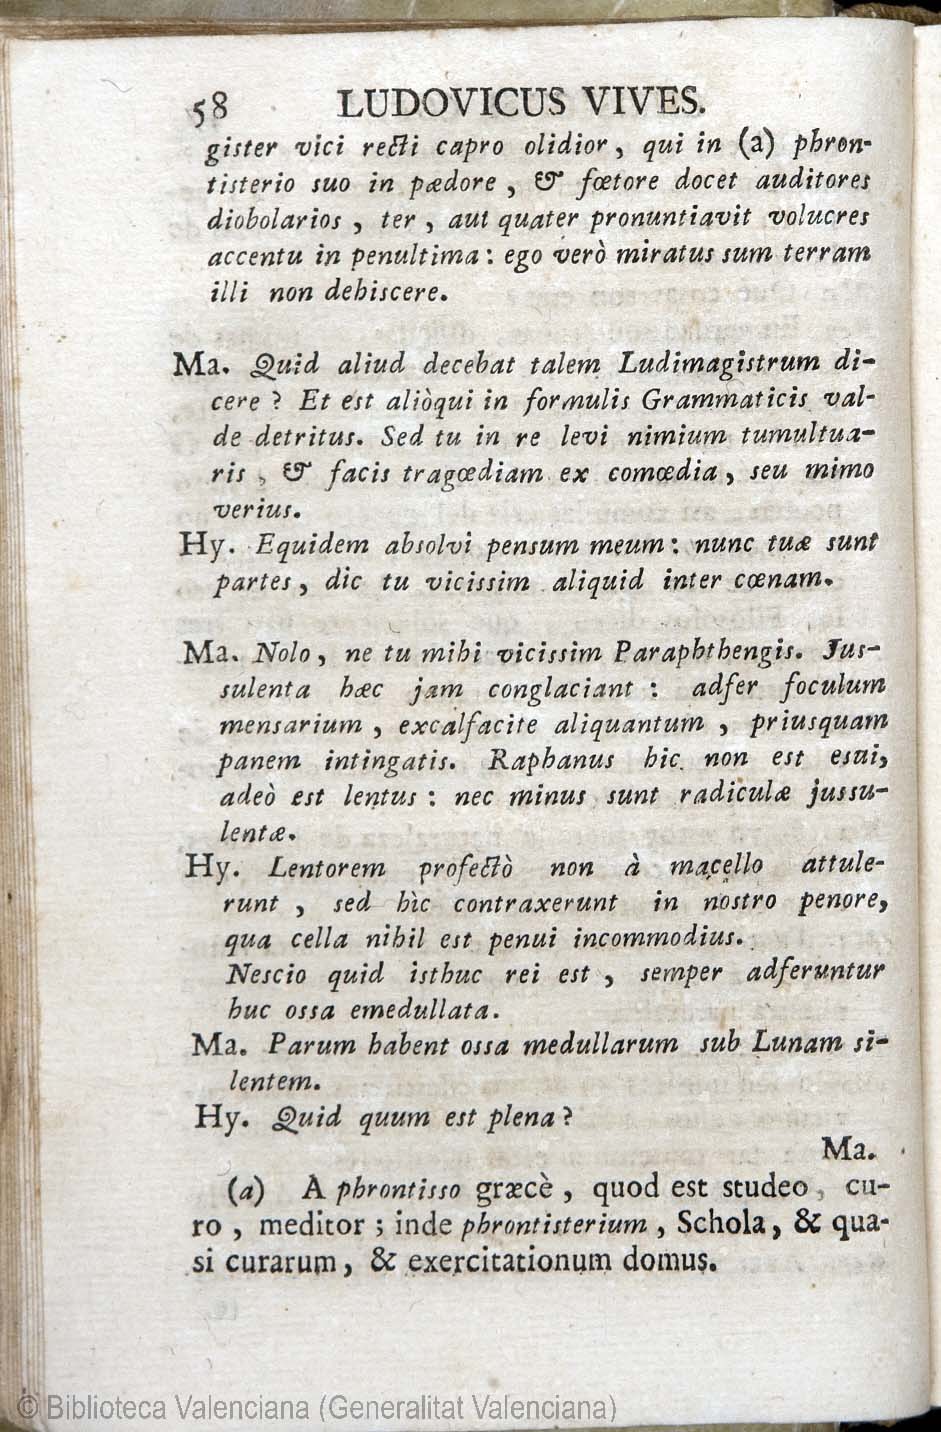 58 LUDOVICUS VIVES.
gister vici recti capro olidior, qui in (a) phron-
tisterio suo in pædore, & fœtore docet auditores
diobolarios, ter, aut quater pronuntiavit volucres
accentu in penultima: ego verò miratus sum terram
illi non dehiscere.
Ma. Quid aliud decebat talem Ludimagistrum di-
cere? Et est aliòqui in formulis Grammaticis val-
de detritus. Sed tu in re levi nimium tumultua-
ris, & facis tragœdiam ex comœdia, seu mimo
verius.
Hy. Equidem absolvi pensum meum: nunc tuæ sunt
partes, dic tu vicissim aliquid inter cœnam.
Ma. Nolo, ne tu mihi vicissim Paraphthengis. Jus-
sulenta hæc jam conglaciant: adfer foculum
mensarium, excalfacite aliquantum, priusquam
panem intingatis. Raphanus hic non est esui,
adeò est lentus: nec minus sunt radiculæ jussu-
lentæ.
Hy. Lentorem profectò non à macello attule-
runt, sed hìc contraxerunt in nostro penore,
qua cella nihil est penui incommodius.
Nescio quid isthuc rei est, semper adferuntur
huc ossa emedullata.
Ma. Parum habent ossa medullarum sub Lunam si-
lentem.
Hy. Quid quum est plena?
Ma.
(a) A phrontisso græcè, quod est studeo, cu-
ro, meditor; inde phrontisterium, Schola, & qua-
si curarum, & exercitationum domus.
© Biblioteca Valenciana (Generalitat Valenciana)